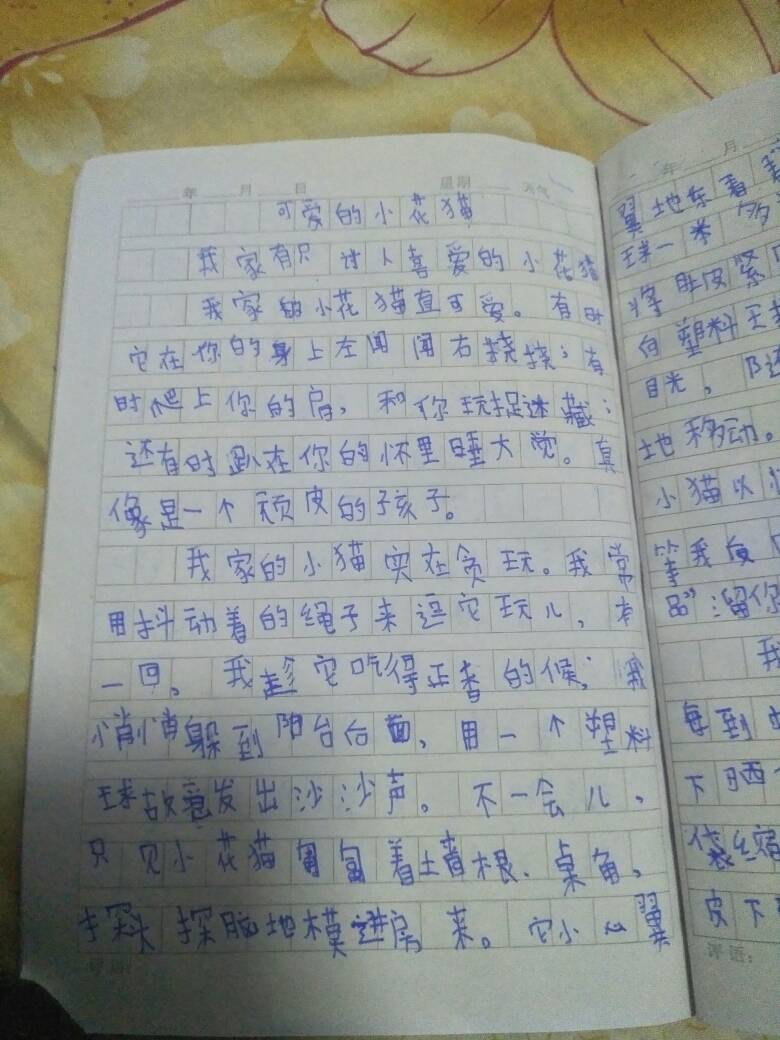 年 月 日 星期 天气
可爱的小花猫
我家有只讨人喜爱的小花猫
我家的小花猫直可爱。有时
它在你的身上左闻闻右挠挠；有
时爬上你的肩，和你玩捉迷藏；
还有时趴在你的怀里睡大觉。真
像是一个顽皮的孩子。
我家的小猫实在贪玩。我常
用抖动着的绳子来逗它玩儿，有
一回，我趁它吃得正香的候，我
悄悄躲到阳台后面，用一个塑料
球故意发出沙沙声。不一会儿，
只见小花猫匍匐着墙根、桌角，
探头探脑地摸进房来。它小心翼
年 月
翼地东看
球一米
将肚皮紧
白塑料王
目光，随
地移动。
小猫以
等我反
品”溜
我
每到
下晒
袋缩
皮下
评语：